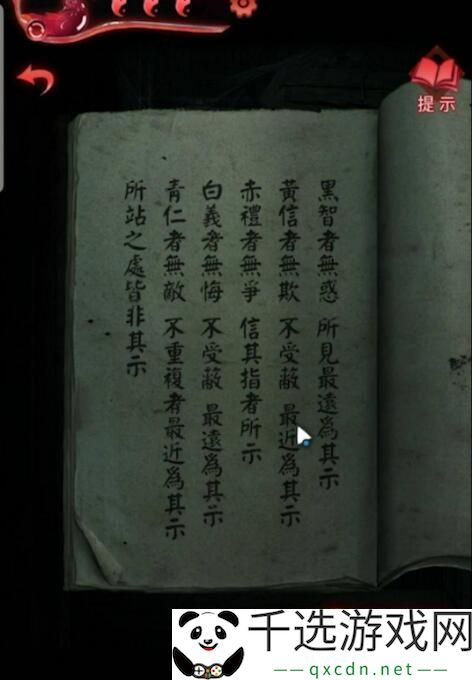 提示
黑智者無惑 所見最遠為其示
黃信者無欺 不受蔽 最近為其示
赤禮者無爭 信其指者所示
白義者無悔 不受蔽 最遠為其示
青仁者無敵 不重複者最近為其示
所站之處皆非其示
千选游戏网
——qxcdn.net——